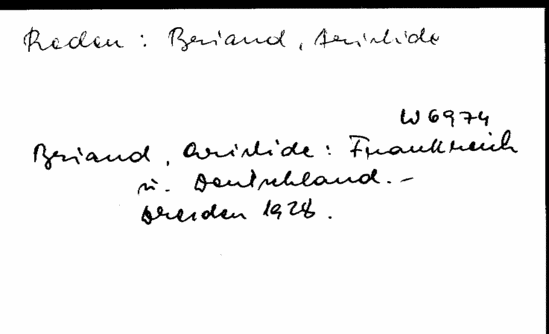 Reden: Briand, Aristide
W 6974
Briand, Aristide: Frankreich
u. Deutschland. -
Dresden 1928.